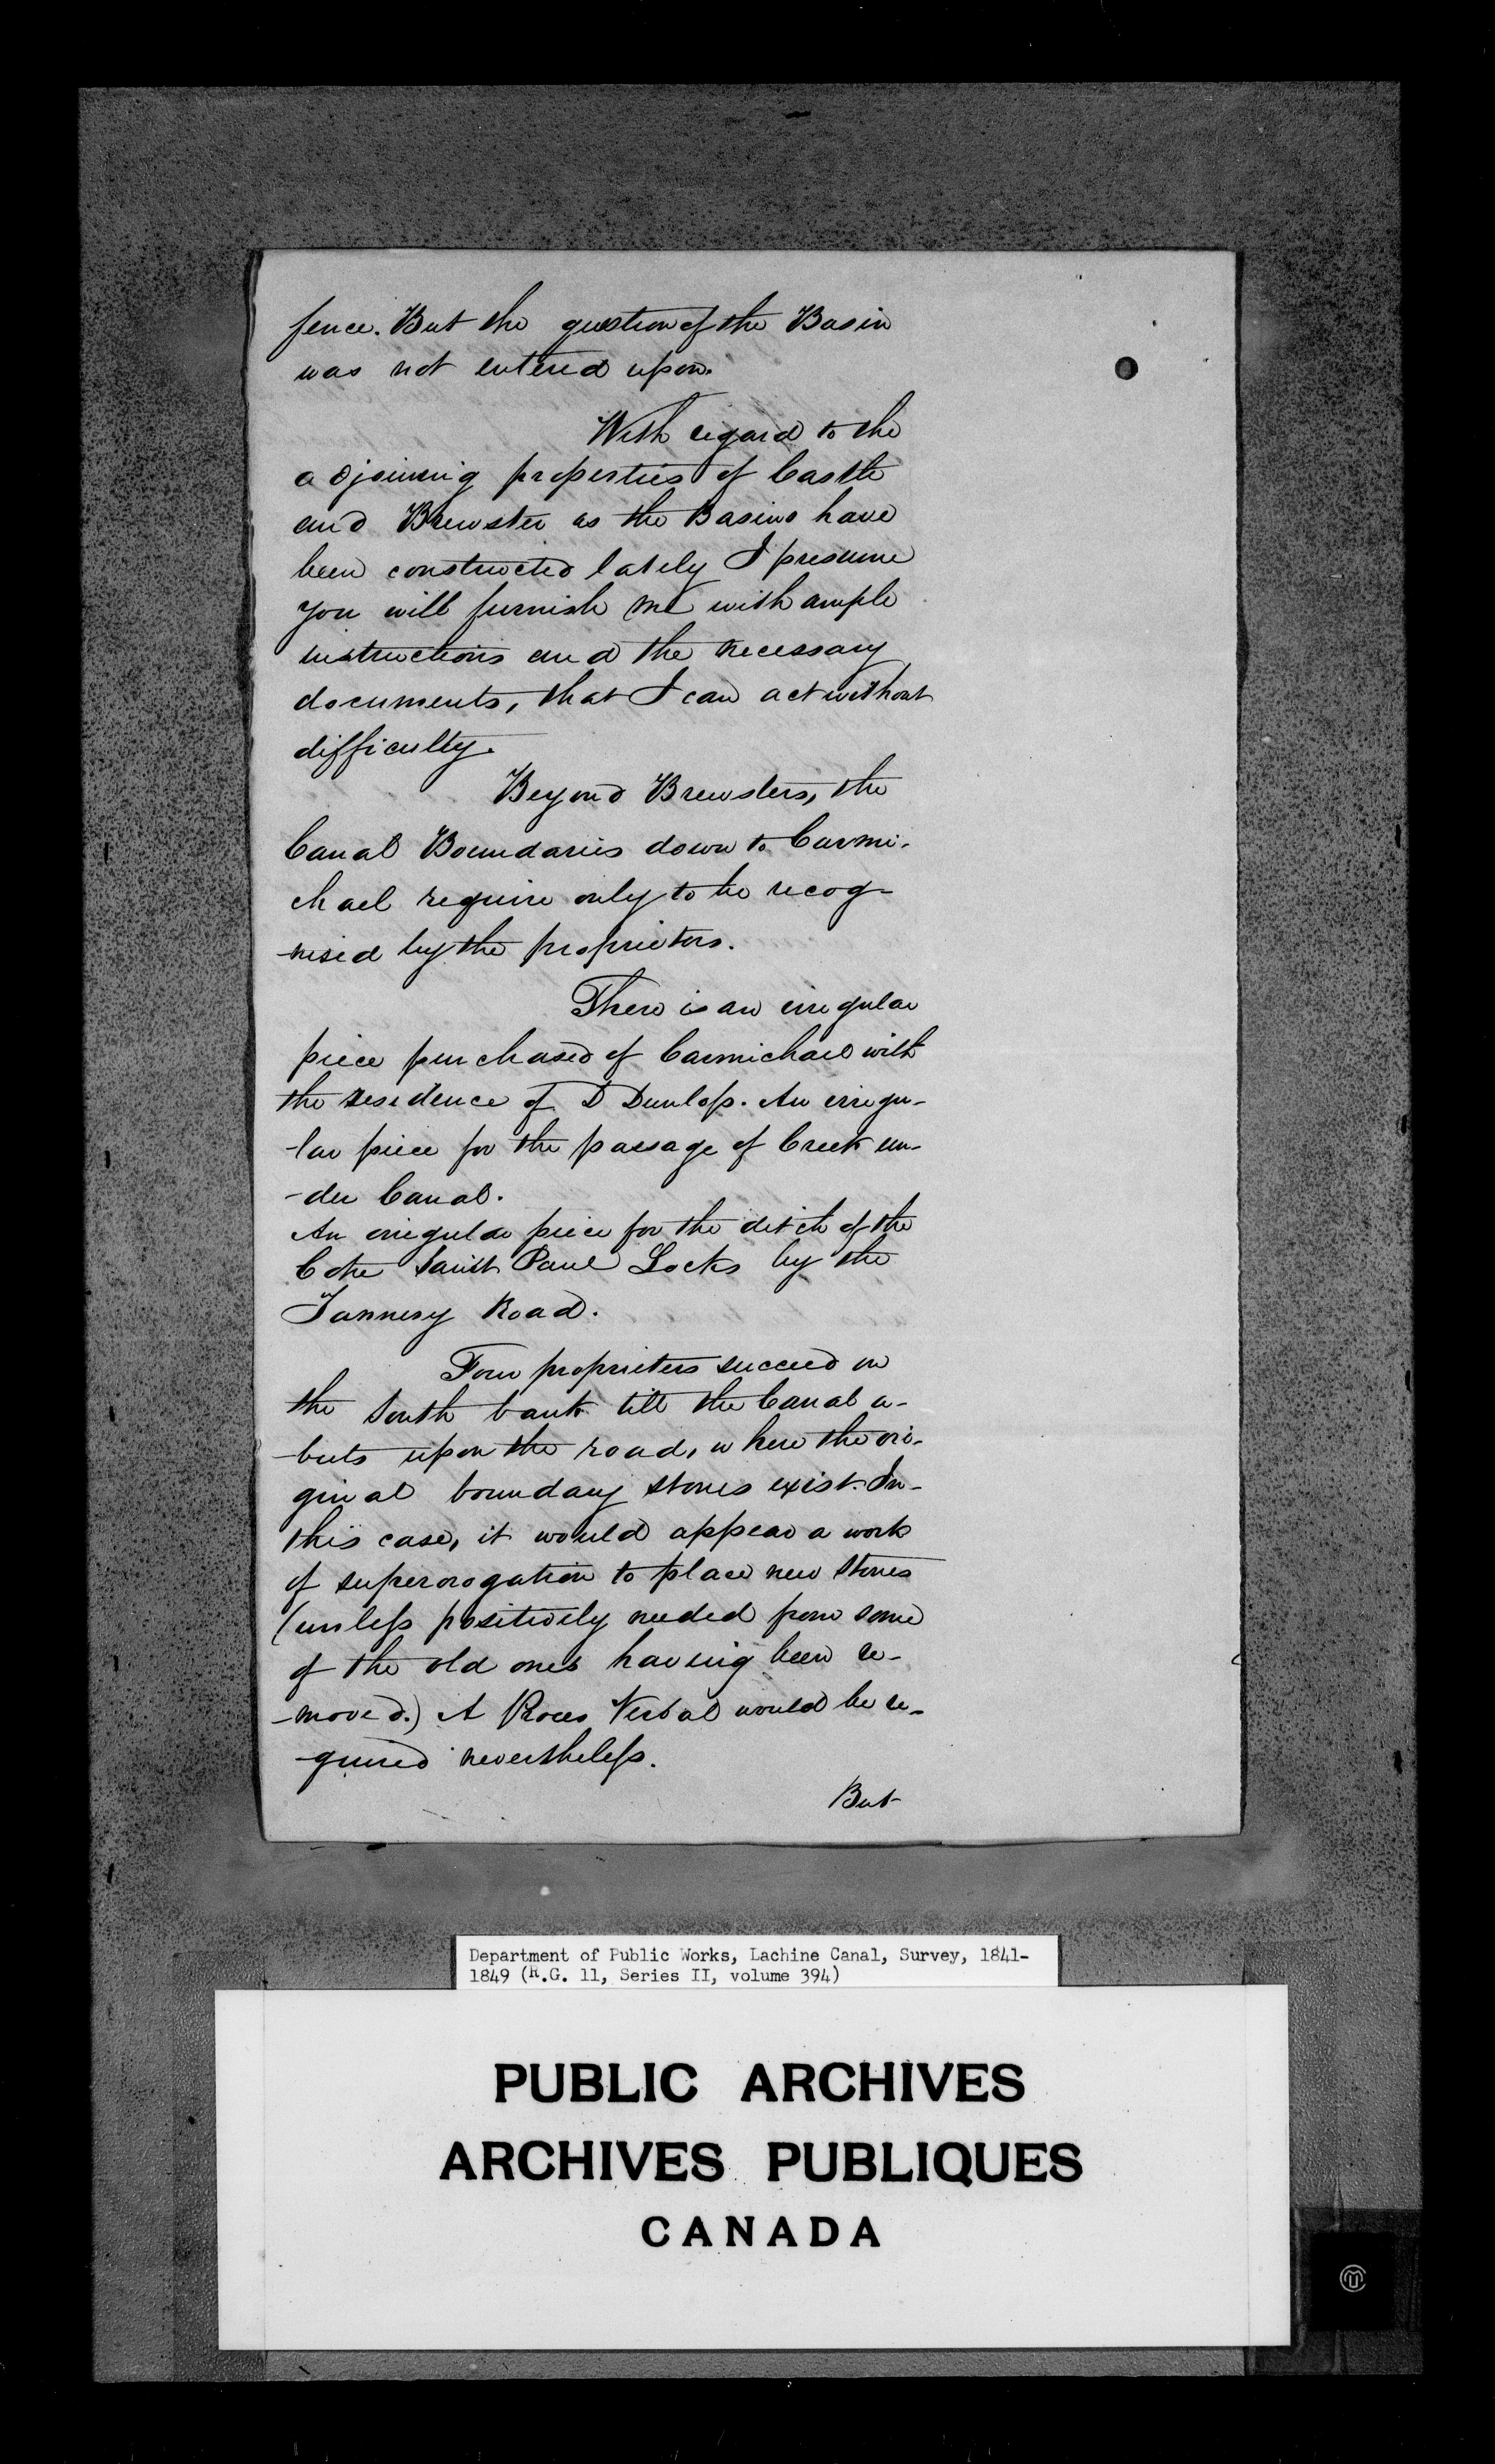 fence. But the question of the Basin
was not entered upon.
With regard to the
adjoining properties of Castle
and Brewster as the Basins have
been constructed lately I presume
you will furnish me with ample
instructions and the necessary
documents, that I can act without
difficulty.
Beyond Brewsters, the
Canal Boundaries down to Carmi-
chael require only to be recog-
-nised by the proprietors.
There is an irregular
piece purchased of Carmichael with
the residence of D Dunlop. An irregu-
-lar piece for the passage of Creek un-
-der Canal.
An irregular piece for the ditch of the
Cote Saint Paul Locks by the
Tannery Road.
Four proprietors succeed on
the South bank till the Canal a-
-buts upon the road, where the ori-
ginal boundary stones exist. In-
this case, it would appear a work
of superorogation to place new stones
(unless positively needed from some
of the old ones having been re-
-moved.) A Proces Verbal would be re-
-quired nevertheless.
But
Department of Public Works, Lachine Canal, Survey, 1841-
1849 (R.G. 11, Series II, volume 394)
PUBLIC ARCHIVES
ARCHIVES PUBLIQUES
CANADA